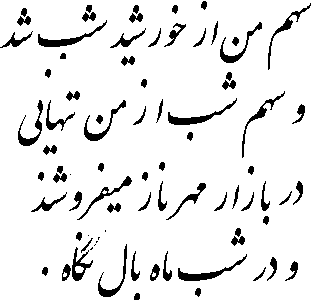 سهم من از خورشید شب شد
و سهم شب از من تنهائی
در بازار مهر ناز میفروشند
و در شب ماه بال نگاه .